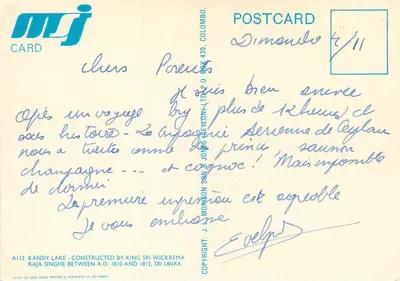 msj
CARD
POSTCARD
Dimanche 4/11
Chers Parents
Je suis bien arrivée
Après un voyage de plus de 12 heures et
sans histoire - La Compagnie Aérienne de Ceylan
nous a traités comme des princes saumon
champagne --- et cognac ! Mais impossible
de dormir
La première impression est agréable
Je vous embrasse
A113. KANDY LAKE - CONSTRUCTED BY KING SRI WICKREMA
RAJA SINGHE BETWEEN A.D. 1810 AND 1812, SRI LANKA.
COPYRIGHT: J. B. MORAJON SAN JOSE (CEYLON) LTD., P.O. BOX 430, COLOMBO.